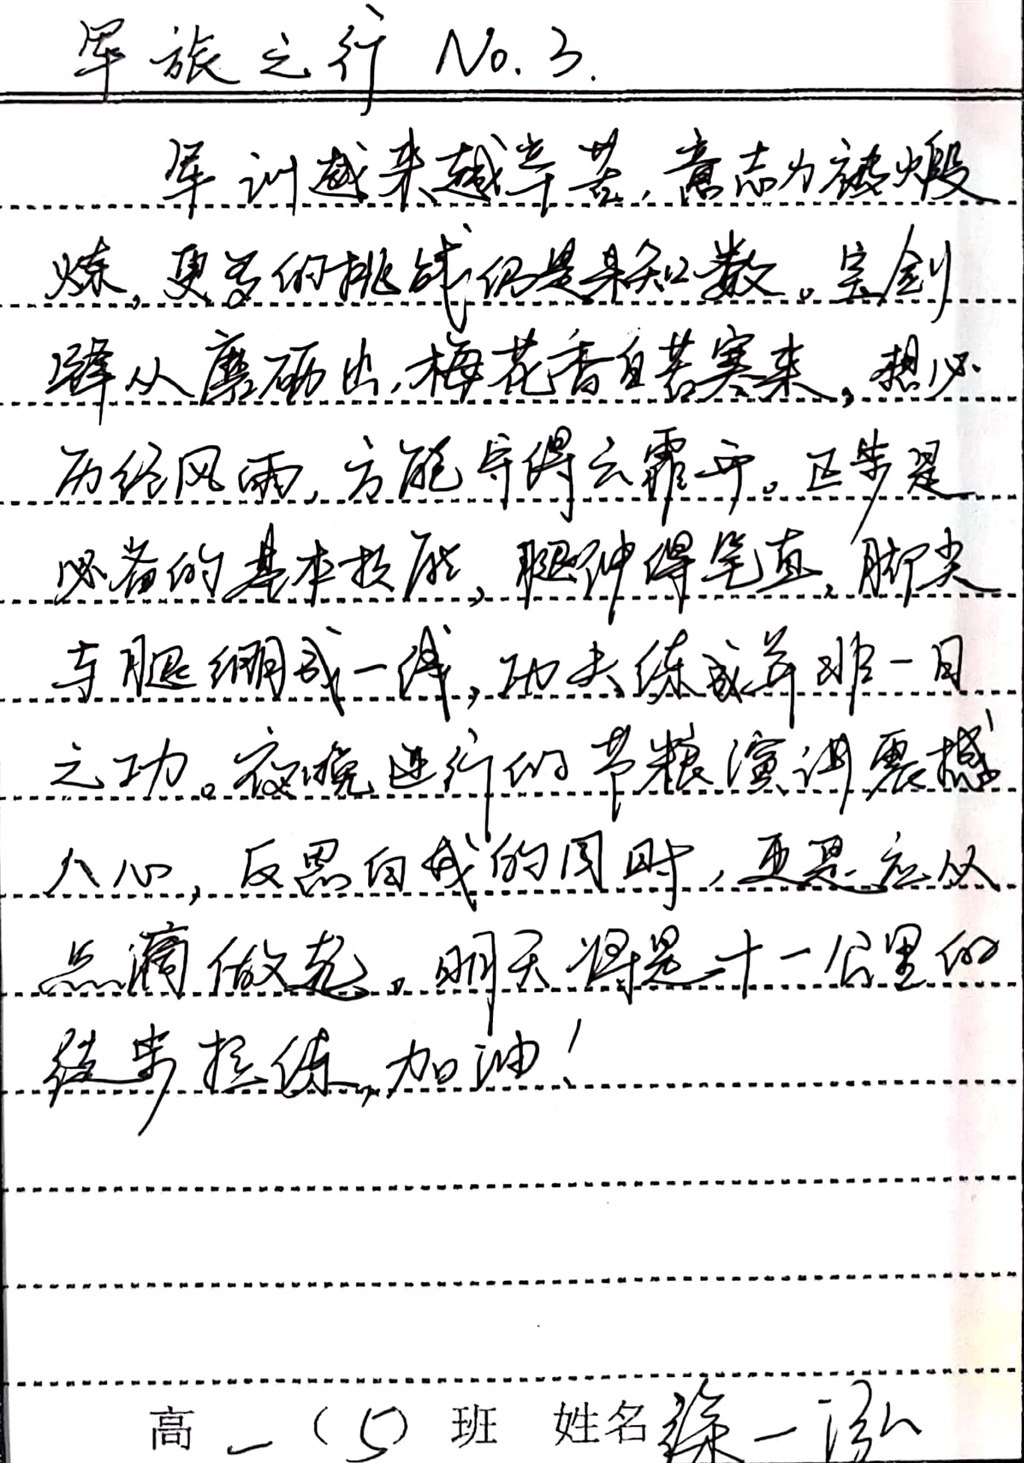 军旅之行 No.3.
军训越来越辛苦，意志力被煅
炼，更多的挑战仍是未知数。宝剑
锋从磨砺出，梅花香自苦寒来，想必
历经风雨，方能守得云霏开。正步是
必备的基本技能，腿伸得笔直，脚尖
与腿绷成一线，功夫练成并非一日
之功。夜晚进行的节粮演讲震撼
人心，反思自我的同时，更是应从
点滴做起。明天将是二十一公里的
徒步拉练，加油！
高一（5）班 姓名徐一泓